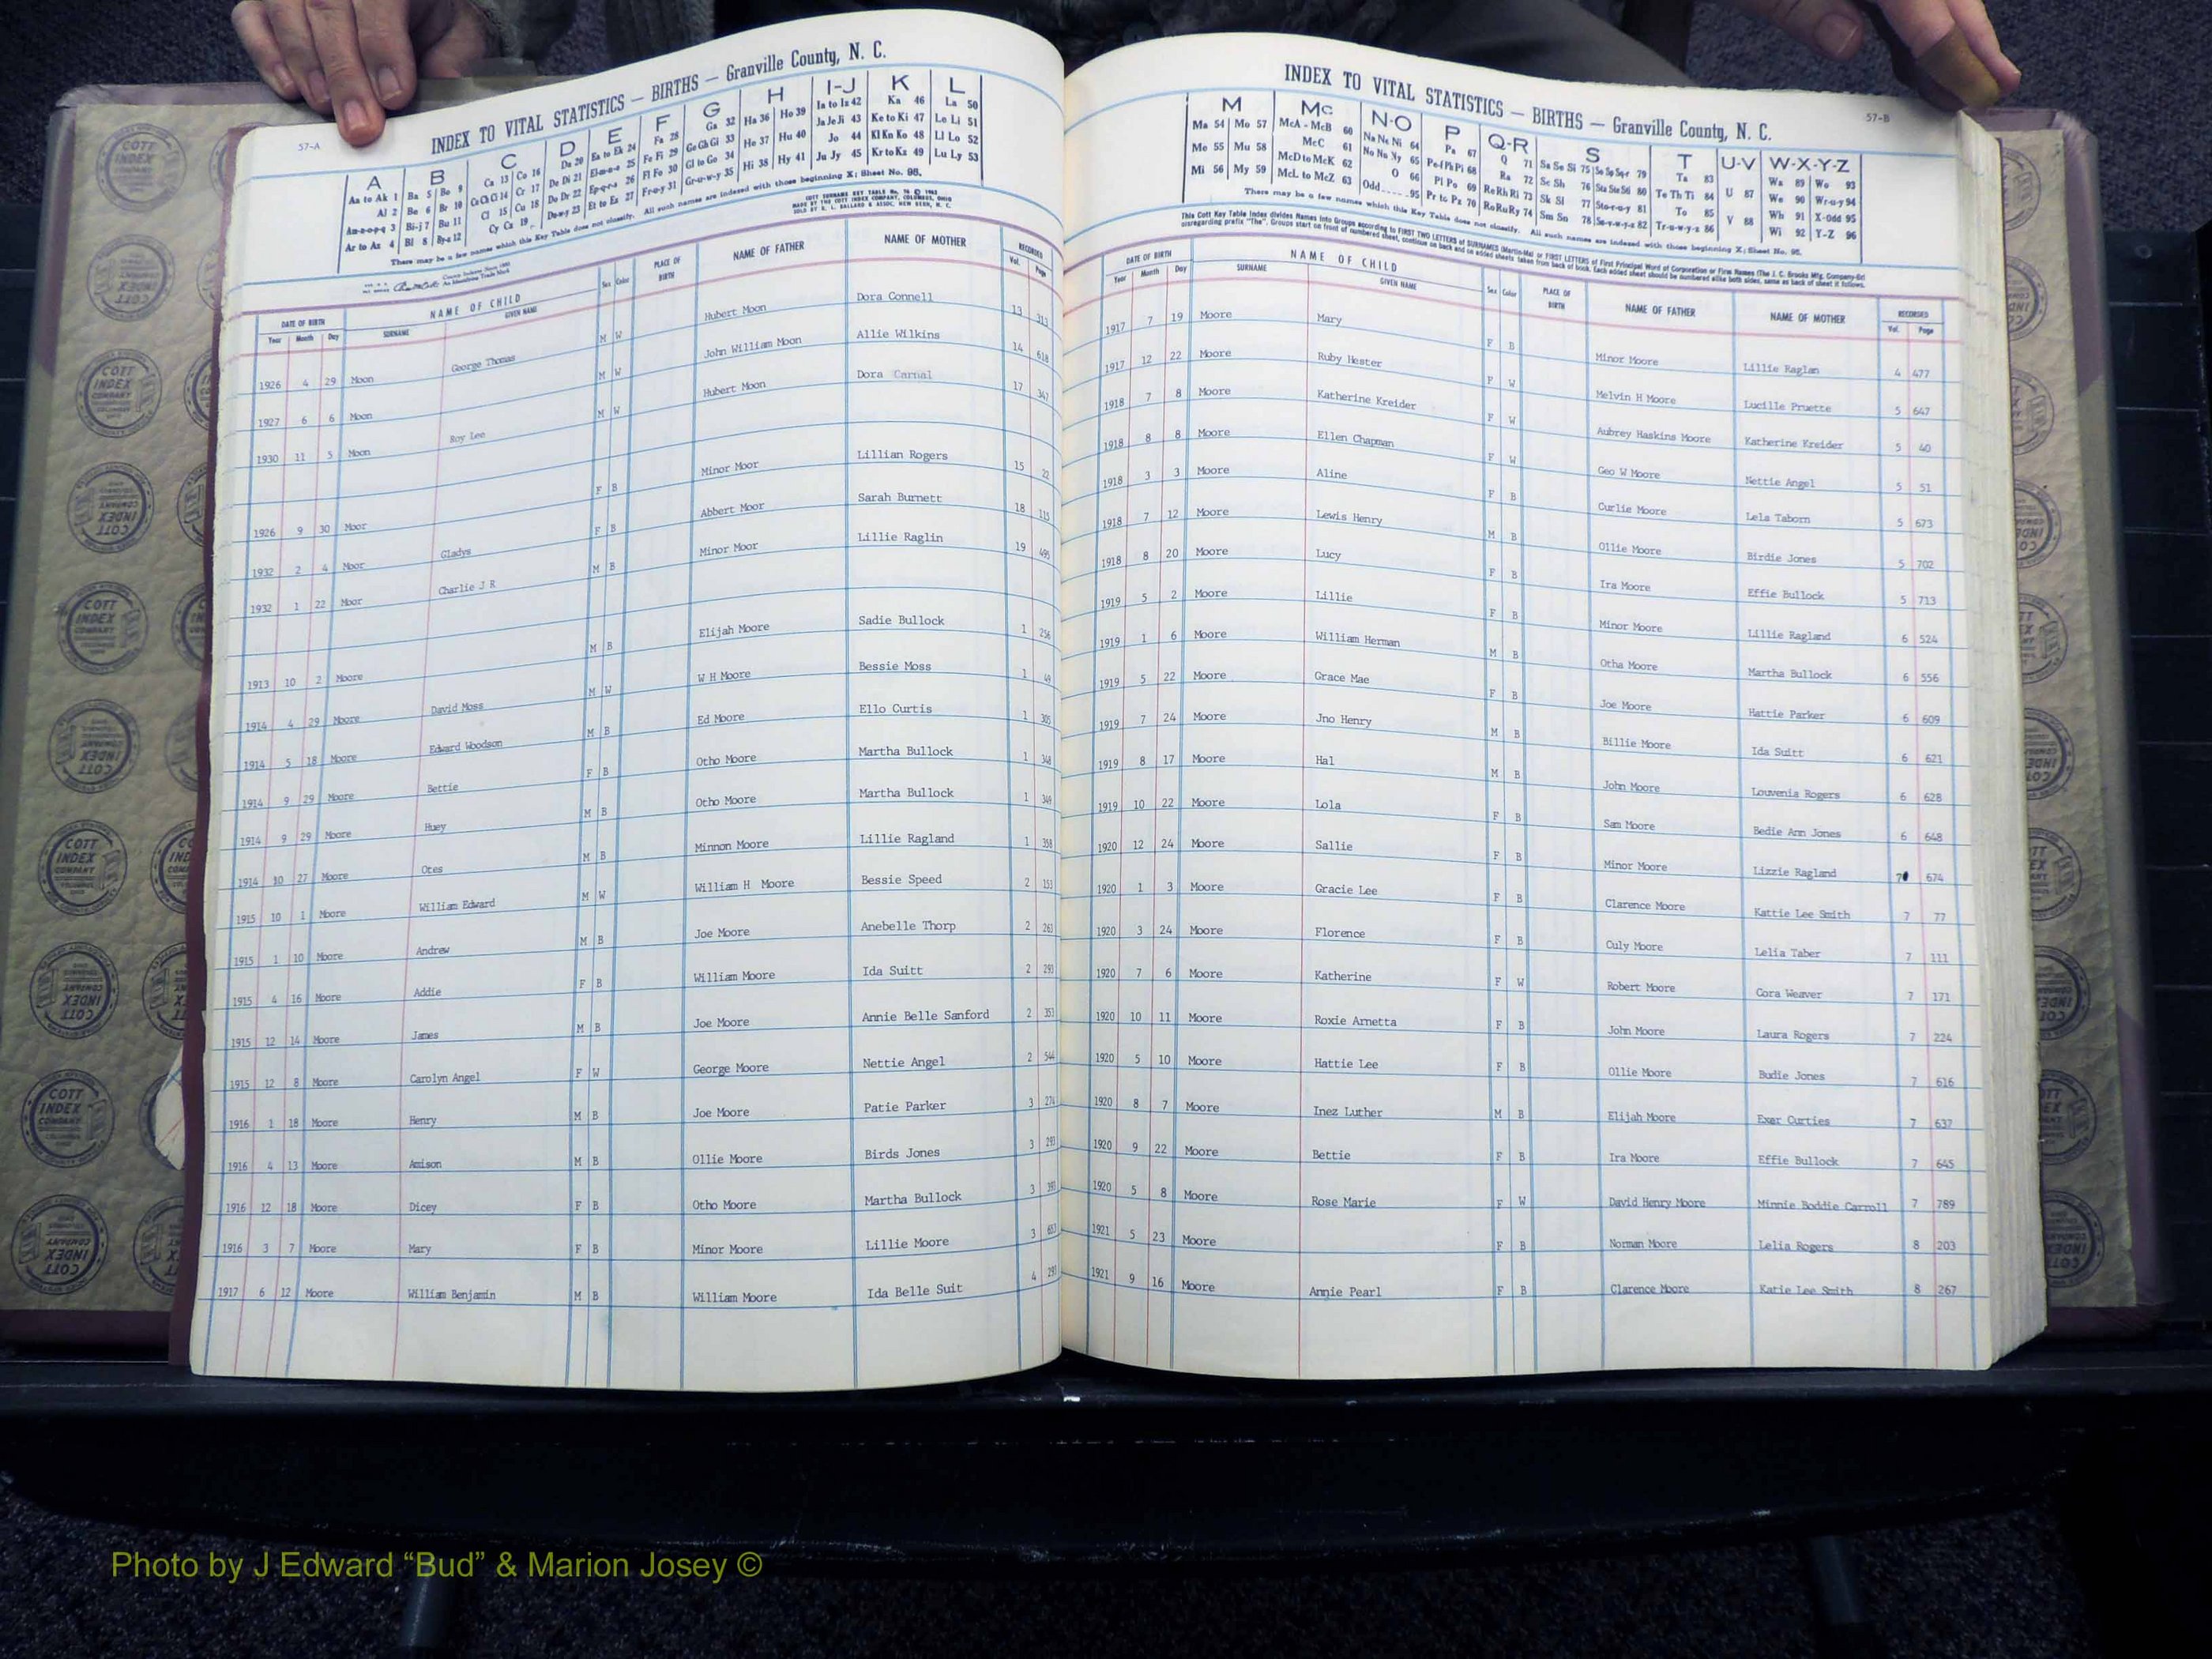 57-A
INDEX TO VITAL STATISTICS — BIRTHS — Granville County, N. C.
A B C D E F G H I-J K L
Aa to Ak 1 Ba 5 Bo 9 Ca 13 Co 16 Da 20 Ea to Ek 24 Fa 28 Ga 32 Ha 36 Ho 39 Ia to Iz 42 Ka 46 La 50
Al 2 Be 6 Br 10 Ce Ch Ci 14 Cr 17 De Di 21 El-m-n-o 25 Fe Fi 29 Ge Gh Gi 33 He 37 Hu 40 Ja Je Ji 43 Ke to Ki 47 Le Li 51
Am-n-o-p-q 3 Bi-j 7 Bu 11 Cl 15 Cu 18 Do Dr 22 Ep-q-r-s 26 Fl Fo 30 Gl to Go 34 Hi 38 Hy 41 Jo 44 Kl Kn Ko 48 Ll Lo 52
Ar to Az 4 Bl 8 By-z 12 Cy Cz 19 Du-w-y 23 Et to Ez 27 Fr-u-y 31 Gr-u-w-y 35 Ju Jy 45 Kr to Kz 49 Lu Ly 53
There may be a few names which this Key Table does not classify. All such names are indexed with those beginning X; Sheet No. 95.
DATE OF BIRTH NAME OF CHILD Sex Color PLACE OF BIRTH NAME OF FATHER NAME OF MOTHER RECORDED
Year Month Day SURNAME GIVEN NAME Vol. Page
1926 4 29 Moon George Thomas M W Hubert Moon Dora Connell 13 313
1927 6 6 Moon M W John William Moon Allie Wilkins 14 618
1930 11 5 Moon Roy Lee M W Hubert Moon Dora Carnal 17 347
1926 9 30 Moor F B Minor Moor Lillian Rogers 15 22
1932 2 4 Moor Gladys F B Abbert Moor Sarah Burnett 18 115
1932 1 22 Moor Charlie J R M B Minor Moor Lillie Raglin 19 495
1913 10 2 Moore M B Elijah Moore Sadie Bullock 1 256
1914 4 29 Moore David Moss M W W H Moore Bessie Moss 1 49
1914 5 18 Moore Edward Woodson M B Ed Moore Ello Curtis 1 305
1914 9 29 Moore Bettie F B Otho Moore Martha Bullock 1 348
1914 9 29 Moore Huey M B Otho Moore Martha Bullock 1 349
1914 10 27 Moore Otes M B Minnon Moore Lillie Ragland 1 358
1915 10 1 Moore William Edward M W William H Moore Bessie Speed 2 153
1915 1 10 Moore Andrew M B Joe Moore Anebelle Thorp 2 263
1915 4 16 Moore Addie F B William Moore Ida Suitt 2 293
1915 12 14 Moore James M B Joe Moore Annie Belle Sanford 2 353
1915 12 8 Moore Carolyn Angel F W George Moore Nettie Angel 2 544
1916 1 18 Moore Henry M B Joe Moore Patie Parker 3 274
1916 4 13 Moore Amison M B Ollie Moore Birds Jones 3 293
1916 12 18 Moore Dicey F B Otho Moore Martha Bullock 3 393
1916 3 7 Moore Mary F B Minor Moore Lillie Moore 3 653
1917 6 12 Moore William Benjamin M B William Moore Ida Belle Suit 4 291
57-B
INDEX TO VITAL STATISTICS — BIRTHS — Granville County, N. C.
M Mc N-O P Q-R S T U-V W-X-Y-Z
Ma 54 Mo 57 McA - McB 60 Na Ne Ni 64 Pa 67 Q 71 Sa Se Si 75 So Sp Sq-r 79 Ta 83 U 87 Wa 89 Wo 93
Me 55 Mu 58 McC 61 No Nu Ny 65 Pe-f Ph Pi 68 Ra 72 Sc Sh 76 Sta Ste Sti 80 Te Th Ti 84 V 88 We 90 Wr-u-y 94
Mi 56 My 59 McD to McK 62 O 66 Pl Po 69 Re Rh Ri 73 Sk Sl 77 Sto-r-u-y 81 To 85 Wh 91 X-Odd 95
McL to McZ 63 Odd.....95 Pr to Pz 70 Ro Ru Ry 74 Sm Sn 78 Su-v-w-y-z 82 Tr-u-w-y-z 86 Wi 92 Y-Z 96
There may be a few names which this Key Table does not classify. All such names are indexed with those beginning X; Sheet No. 95.
This Cott Key Table Index divides Names into Groups according to FIRST TWO LETTERS of SURNAMES (Martin-Ma) or FIRST LETTERS of First Principal Word of Corporation or Firm Names (The J. C. Brooks Mfg. Company-Br)
disregarding prefix "The". Groups start on front of numbered sheet, continue on back and on added sheets taken from back of book. Each added sheet should be numbered alike both sides, same as back of sheet it follows.
DATE OF BIRTH NAME OF CHILD Sex Color PLACE OF BIRTH NAME OF FATHER NAME OF MOTHER RECORDED
Year Month Day SURNAME GIVEN NAME Vol. Page
1917 7 19 Moore Mary F B Minor Moore Lillie Raglan 4 477
1917 12 22 Moore Ruby Hester F W Melvin H Moore Lucille Pruette 5 647
1918 7 8 Moore Katherine Kreider F W Aubrey Haskins Moore Katherine Kreider 5 40
1918 8 8 Moore Ellen Chapman F W Geo W Moore Nettie Angel 5 51
1918 3 3 Moore Aline F B Curlie Moore Lela Taborn 5 673
1918 7 12 Moore Lewis Henry M B Ollie Moore Birdie Jones 5 702
1918 8 20 Moore Lucy F B Ira Moore Effie Bullock 5 713
1919 5 2 Moore Lillie F B Minor Moore Lillie Ragland 6 524
1919 1 6 Moore William Herman M B Otha Moore Martha Bullock 6 556
1919 5 22 Moore Grace Mae F B Joe Moore Hattie Parker 6 609
1919 7 24 Moore Jno Henry M B Billie Moore Ida Suitt 6 621
1919 8 17 Moore Hal M B John Moore Louvenia Rogers 6 628
1919 10 22 Moore Lola F B Sam Moore Bedie Ann Jones 6 648
1920 12 24 Moore Sallie F B Minor Moore Lizzie Ragland 7 674
1920 1 3 Moore Gracie Lee F B Clarence Moore Kattie Lee Smith 7 77
1920 3 24 Moore Florence F B Culy Moore Lelia Taber 7 111
1920 7 6 Moore Katherine F W Robert Moore Cora Weaver 7 171
1920 10 11 Moore Roxie Arnetta F B John Moore Laura Rogers 7 224
1920 5 10 Moore Hattie Lee F B Ollie Moore Budie Jones 7 616
1920 8 7 Moore Inez Luther M B Elijah Moore Exer Curties 7 637
1920 9 22 Moore Bettie F B Ira Moore Effie Bullock 7 645
1920 5 8 Moore Rose Marie F W David Henry Moore Minnie Boddie Carroll 7 789
1921 5 23 Moore F B Norman Moore Lelia Rogers 8 203
1921 9 16 Moore Annie Pearl F B Clarence Moore Katie Lee Smith 8 267
COTT INDEX COMPANY
Photo by J Edward “Bud” & Marion Josey ©